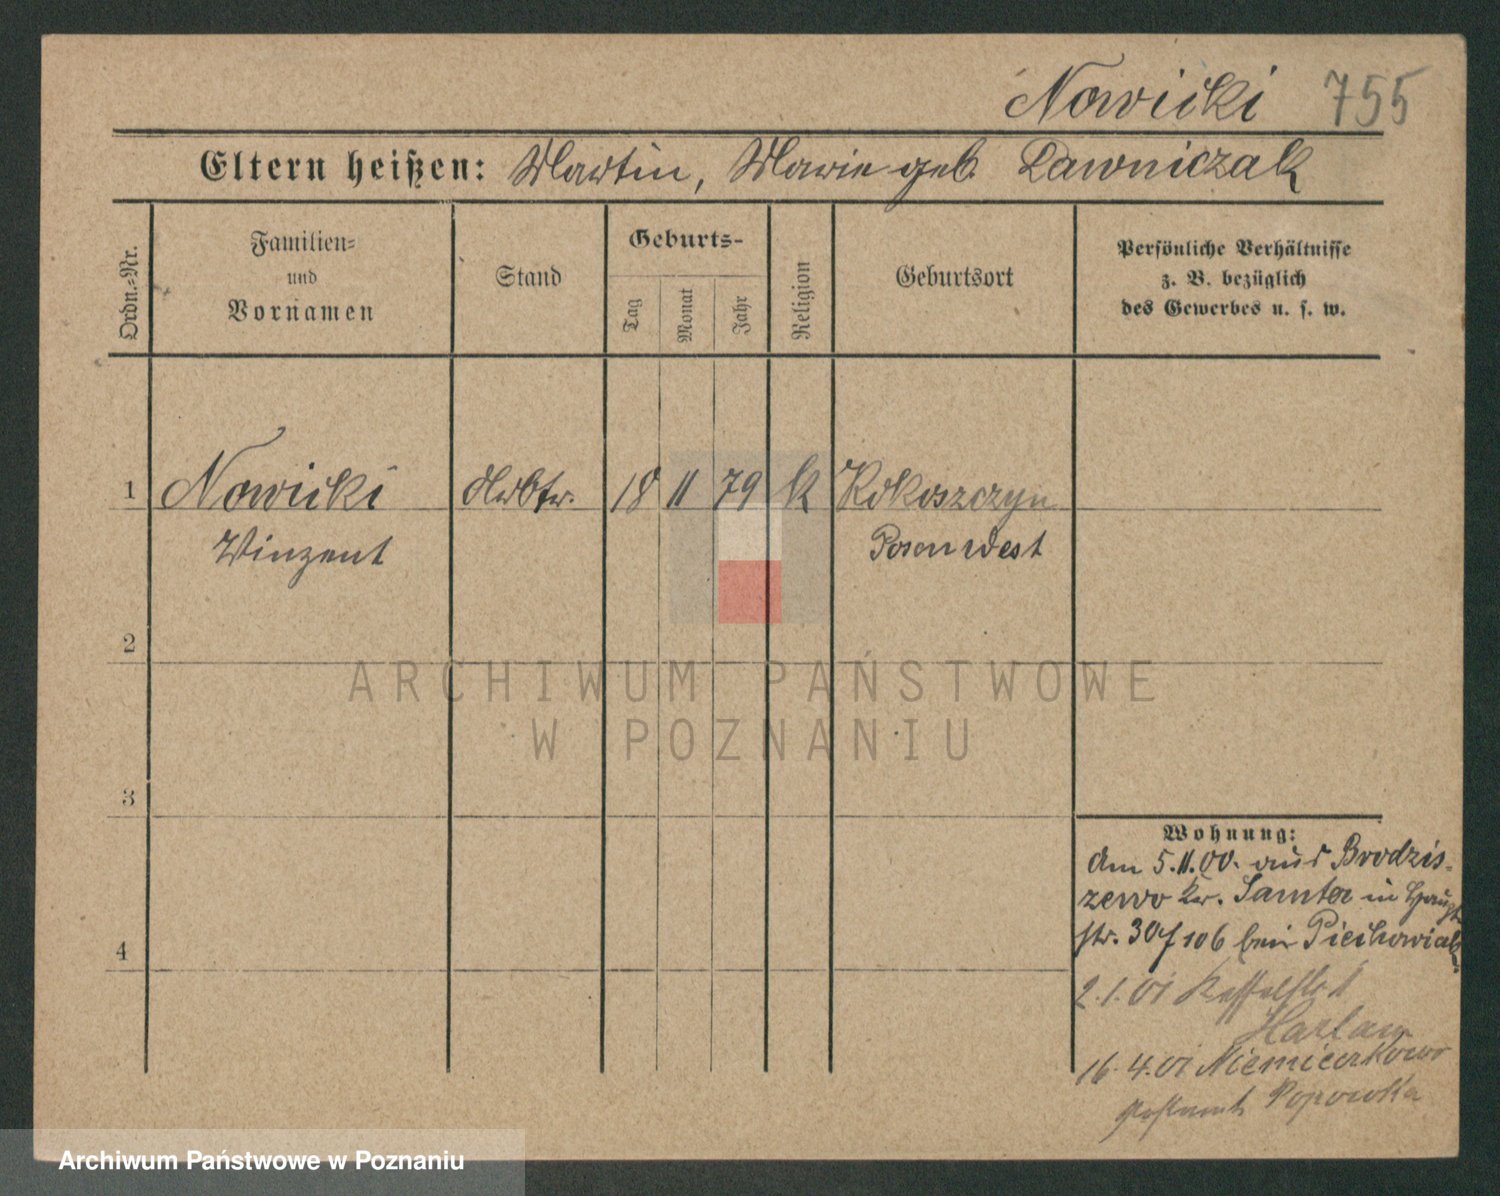 Nowicki 755
Eltern heißen: Martin, Marie geb. Ławniczak
Ordn.-Nr.
Familien-
und
Vornamen
Stand
Geburts-
Tag
Monat
Jahr
Religion
Geburtsort
Persönliche Verhältnisse
z. B. bezüglich
des Gewerbes u. s. w.
1 Nowicki Arbtr. 18 11 79 k Rokoszczyn
Vinzent Posen West
2
ARCHIWUM PAŃSTWOWE
W POZNANIU
3
Wohnung:
Am 5.11.00. aus Brodzis-
zewo Kr. Samter in Haupt
4
str. 30 106 bei Piechowiak
2.1.01
16.4.01 Niemieczkowo
Popowko
Archiwum Państwowe w Poznaniu